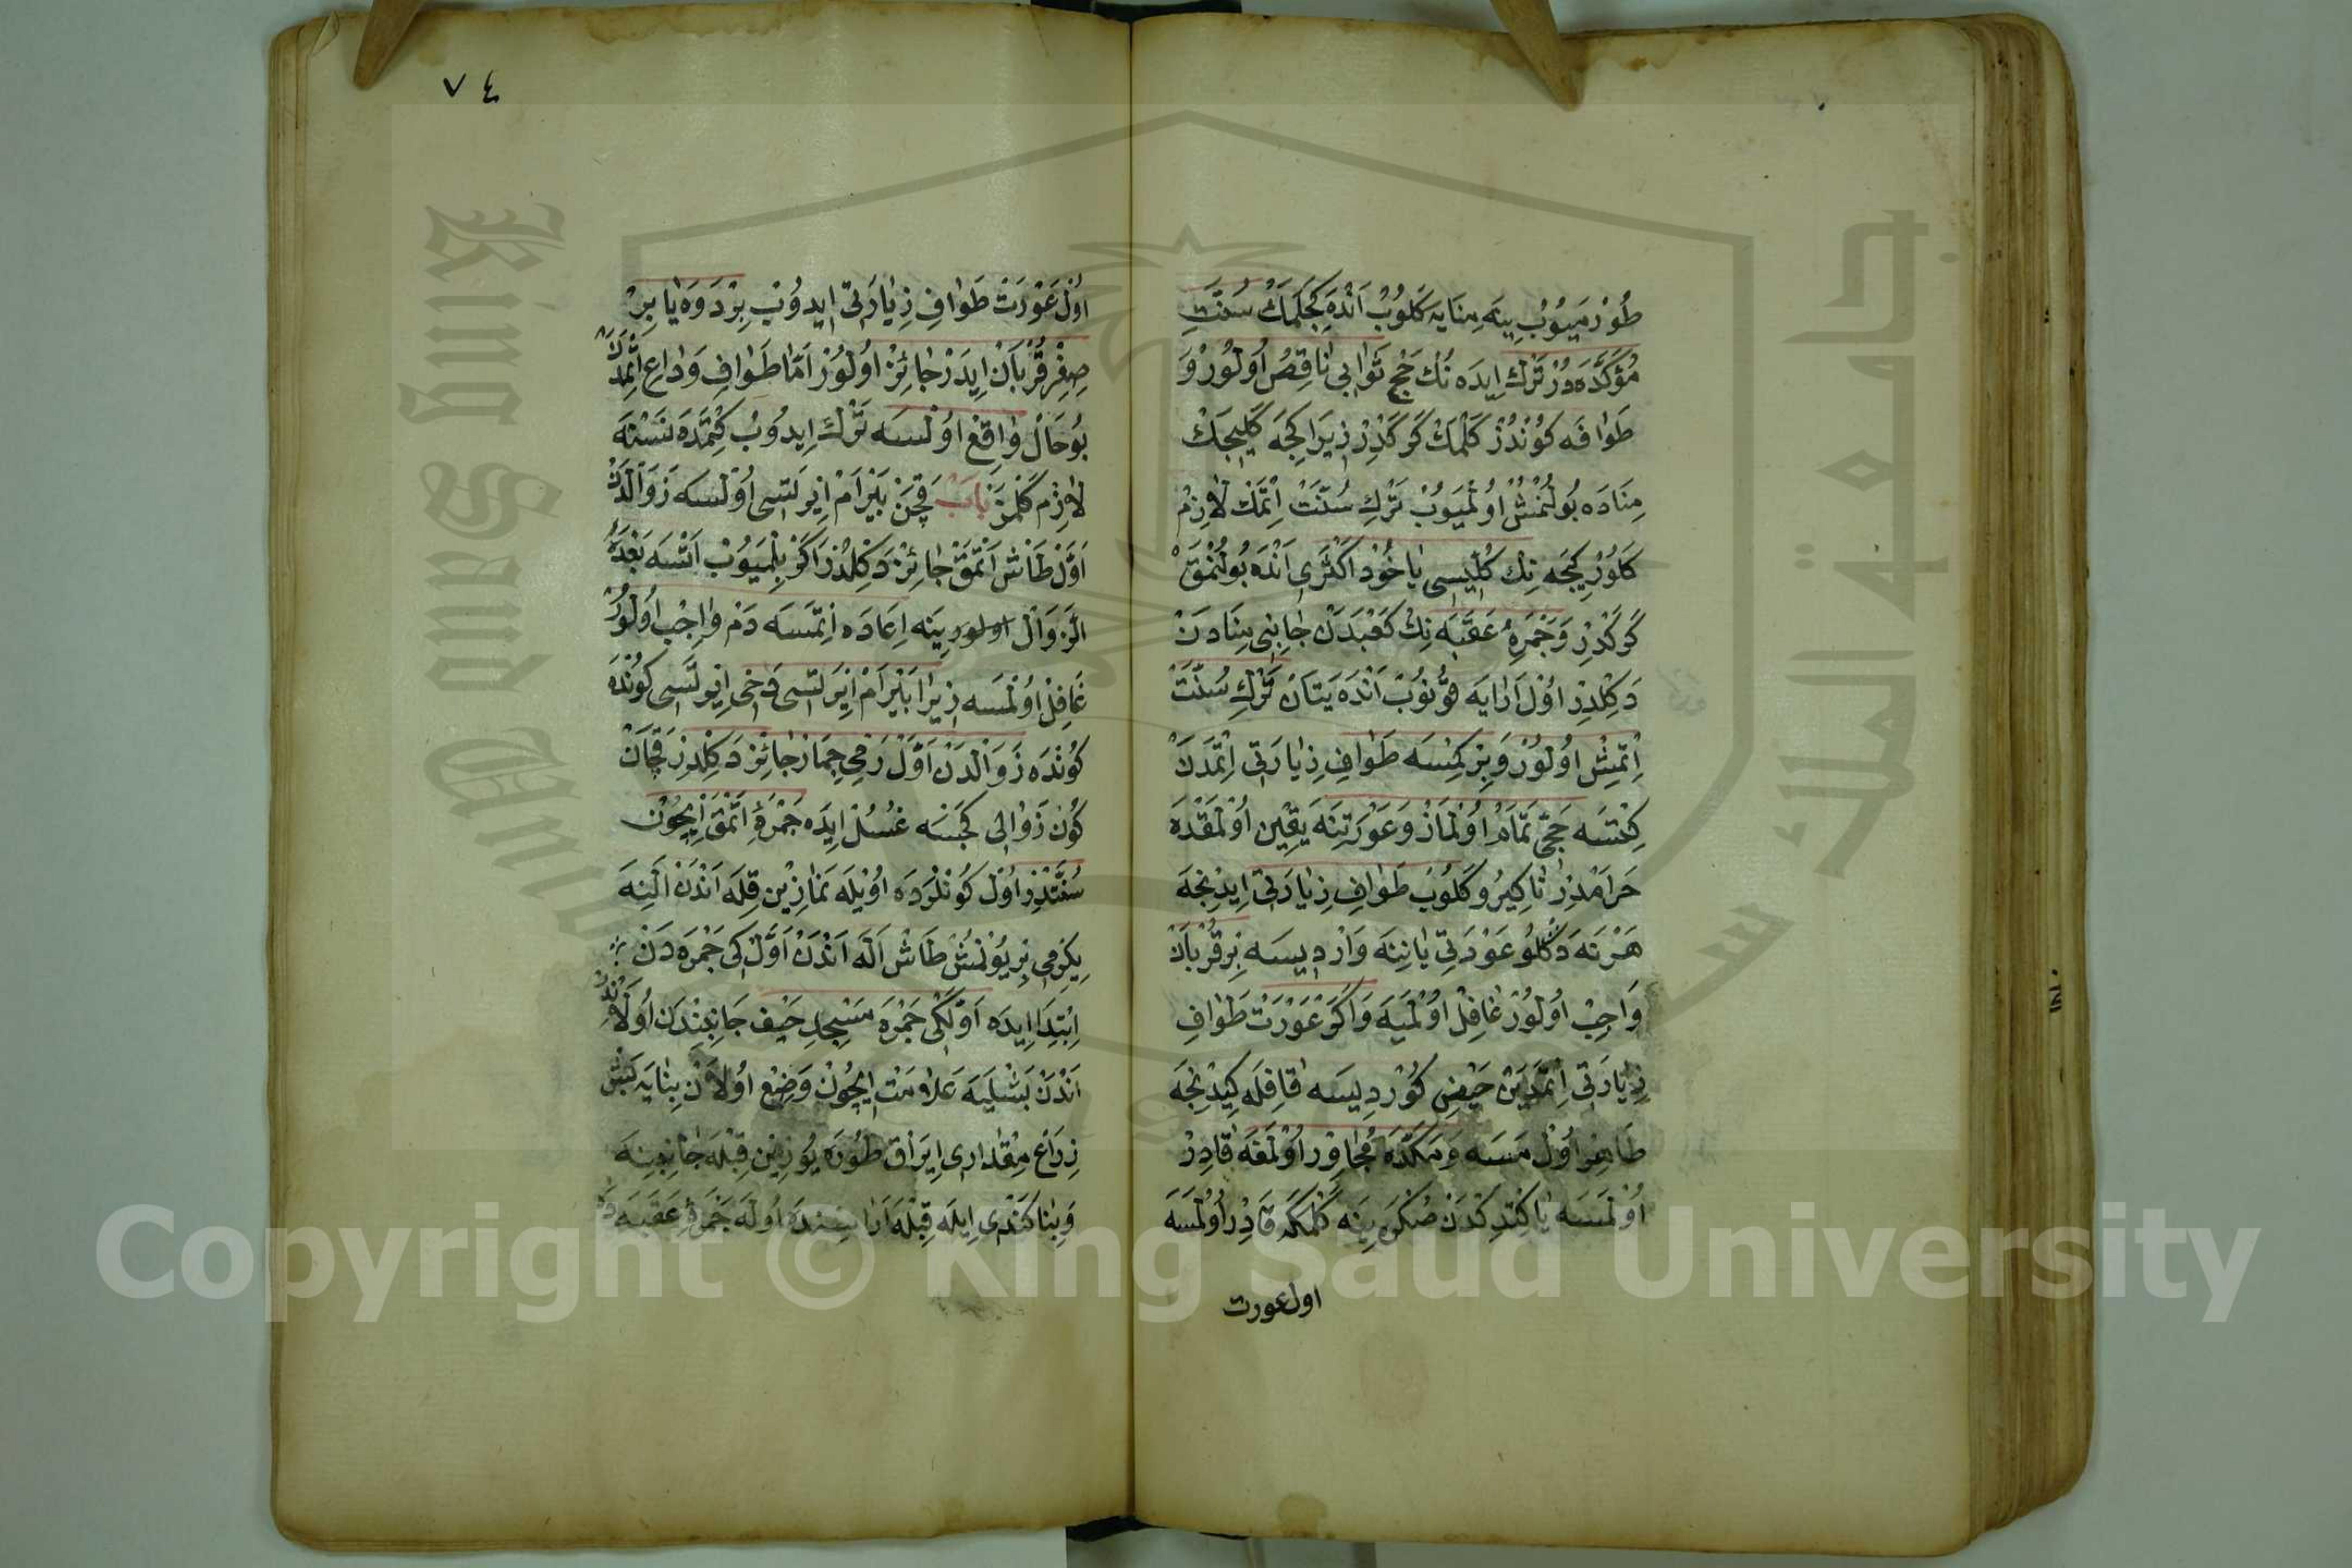 طُوزْمَيوُبْ يِنَه مِنَايَه كَلوُبْ اَنْدَه كِجَلَمَكْ سُنَّتِ
مُؤَكَّدَه دُرْ تَرْكْ اِيدَه نُكْ حَجْ ثَوَابِى نَاقِصْ اُولوُرْ وَ
طَوَافَه كوُندُزْ كَلْمَكْ كَرَكْدِرْ زِيرَا كِجَه كَلِيجَكْ
مِنَادَه بوُلُنْمُشْ اوُلْمَيوُبْ تَرْكِ سُنَّتْ اِتْمَكْ لَازِمْ
كَلوُرْ كِيجَه نِكْ كُلّيسِى يَاخُودْ اَكْثَرِى اَنْدَه بُولُنْمَقْ
كَرَكْدِرْ وَجَمْرَهِ عَقَبَه نِكْ كَعْبَه دَنْ جَانِبِى مِنَادَنْ
دَكِلْدِرْ اوُلْ اَرَايَه قُونوُبْ اَنْدَه يَتَانْ تَرْكِ سُنَّتْ
اِتْمِشْ اوُلوُرْ وَبِرْ كِمْسَه طَوَافِ زِيَارَتِى اِتْمَدَنْ
كِتْسَه حَجِّى تَمَامْ اوُلْمَازْ وَعَوْرَتِنَه يَقِينْ اوُلْمَقْدَه
حَرَامْدِرْ تَا كِيرُو كَلوُبْ طَوَافِ زِيَارَتِى اِيدِنْجَه
هَرْ نَه دَكْلُو عَوْرَتِى يَانِنَه وَارْدِيسَه بِرْ قُرْبَانْ
وَاجِبْ اوُلوُرْ غَافِلْ اوُلْمَيَه وَاكَرْ عَوْرَتْ طَوَافِ
زِيَارَتِى اِتْمَدِينْ حَيْضْ كوُرْدِيسَه قَافِلَه كِيدِنْجَه
طَاهِرْ اوُلْمَسَه وَمَكَّه دَه مُجَاوِرْ اوُلْمَغَه قَادِرْ
اوُلْمَسَه يَا كِتْدِكْدَنْ صُكْرَه يِنَه كَلْمَكَه قَادِرْ اوُلْمَسَه
اول عورت
٧٤
اوُلْ عَوْرَتْ طَوَافِ زِيَارَتِى اِيدوُبْ بِرْ دَوَه يَا بِرْ
صِغِرْ قُرْبَانْ اِيدَرْ جَائِزْ اوُلوُرْ اَمَّا طَوَافِ وَدَاعِ اِتْمَدَنْ
بوُ حَالْ وَاقِعْ اوُلْسَه تَرْكْ اِيدوُبْ كِتْمَدَه نَسْنَه
لَازِمْ كَلْمَزْ بَابْ قَچَنْ بَيْرَامْ اِيرْتَسِى اوُلْسَه زَوَالْدَنْ
اَوَّلْ طَاشْ اَتْمَقْ جَائِزْ دَكِلْدُرْ اَكَرْ بِلْمَيوُبْ اَتْسَه بَعْدَ
الزَّوَالْ اولور يِنَه اِعَادَه اِتْمَسَه دَمْ وَاجِبْ اوُلوُرْ
غَافِلْ اوُلْمَسَه زِيرَا بَيْرَامْ اِيرْتَسِى دَخِى اِيرْتَسِى كوُنْدَه
كوُنْدَه زَوَالْدَنْ اَوَّلْ رَمْىِ جِمَارْ جَائِزْ دَكِلْدِرْ قَچَانْ
كوُنْ زَوَالِى كَچْسَه غُسُلْ اِيدَه جَمْرَهِ اَتْمَقْ اِيچُونْ
سُنَّتْدِرْ اوُلْ كوُنْلَرْدَه اوُيْلَه نَمَازِينْ قِلَه اَنْدَنْ اَلِنَه
يِكِرْمِى بِرْ يوُنْمُشْ طَاشْ اَلَه اَنْدَنْ اَوَّلْكِى جَمْرَه دَنْ
اِبْتِدَا اِيدَه اَوَّلْكِى جَمْرَه مَسْجِدِ حَيْف جَانِبِنْدَنْ اوُلَانْدُرْ
اَنْدَنْ بَشْلَيَه عَلَامَتْ اِيچُونْ وَضِعْ اوُلَانْ بِنَايَه بَشْ
ذِرَاعْ مِقْدَارِى اِيرَاقْ طُورَه يوُزِينْ قِبْلَه جَانِبِنَه
وَبِنَا كَنْدِى اِيلَه قِبْلَه اَرَاسِنْدَه اوُلَه جَمْرَهِ عَقَبَه دَه